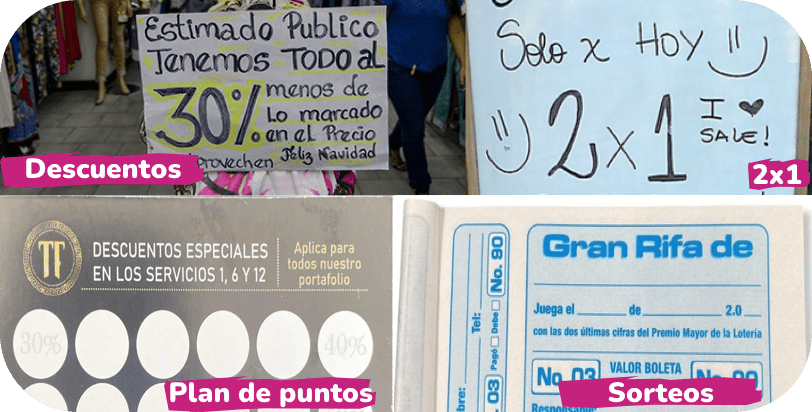 Estimado Publico
Tenemos TODO al
30% menos de
Lo marcado
en el Precio
Aprovechen Feliz Navidad
Descuentos
Solo x HOY
2x1 I ♥
SALE!
2x1
TF
DESCUENTOS ESPECIALES
EN LOS SERVICIOS 1, 6 Y 12
Aplica para
todos nuestro
portafolio
30%
40%
Plan de puntos
Tel:
Pagó Debe No. 90
03
Gran Rifa de
Juega el de 2.0
con las dos últimas cifras del Premio Mayor de la Lotería
No. 03 VALOR BOLETA
Responsable
Sorteos